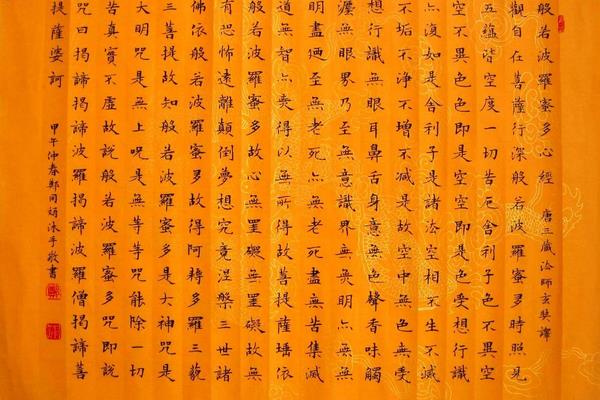 般若波羅蜜多心經 唐三藏法師玄奘譯
觀自在菩薩行深般若波羅蜜多時照見
五蘊皆空度一切苦厄舍利子色不異空
空不異色色即是空空即是色受想行識
亦復如是舍利子是諸法空相不生不滅
不垢不淨不增不減是故空中無色無受
想行識無眼耳鼻舌身意無色聲香味觸
灋無眼界乃至無意識界無無明亦無無
明盡廼至無老死亦無老死盡無苦集滅
道無智亦無得以無所得故菩提薩埵依
般若波羅蜜多故心無罣礙無罣礙故無
有恐怖遠離顛倒夢想究竟涅槃三世諸
佛依般若波羅蜜多故得阿耨多羅三藐
三菩提故知般若波羅蜜多是大神咒是
大明咒是無上咒是無等等咒能除一切
苦真實不虛故說般若波羅蜜多咒即說
咒曰揭諦揭諦波羅揭諦波羅僧揭諦菩
提薩婆訶
甲午仲春鄭同娟沐手敬書